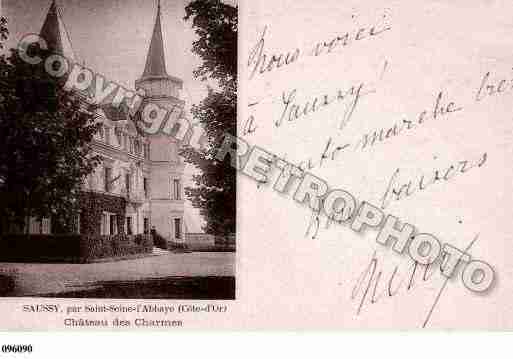 Nous voici
à Saussy!
L'auto marche bien
baisers
SAUSSY, par Saint-Seine-l'Abbaye (Côte-d'Or)
Château des Charmes
Copyright © RETROPHOTO
096090